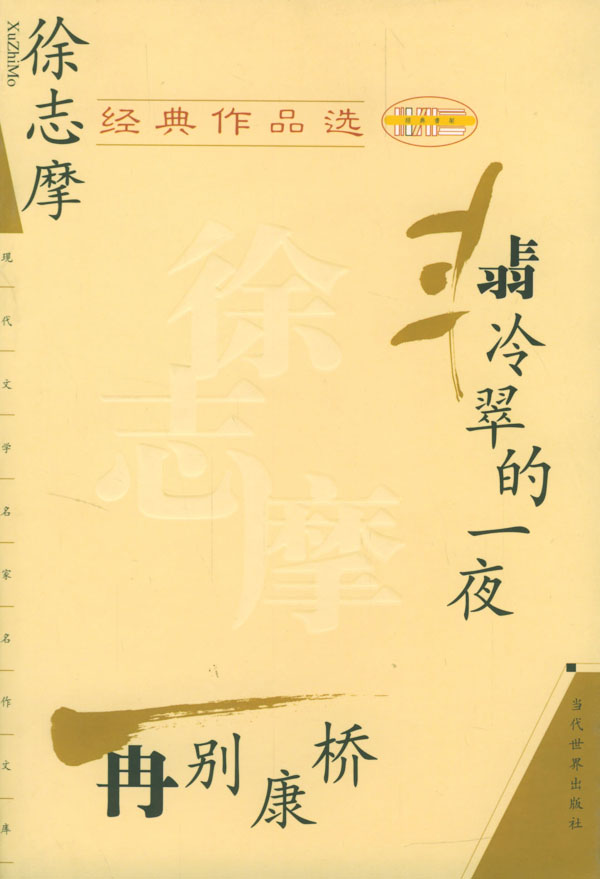 徐志摩
XuZhiMo
经典作品选
翡冷翠的一夜
徐志摩
再别康桥
现代文学名家名作文库
当代世界出版社